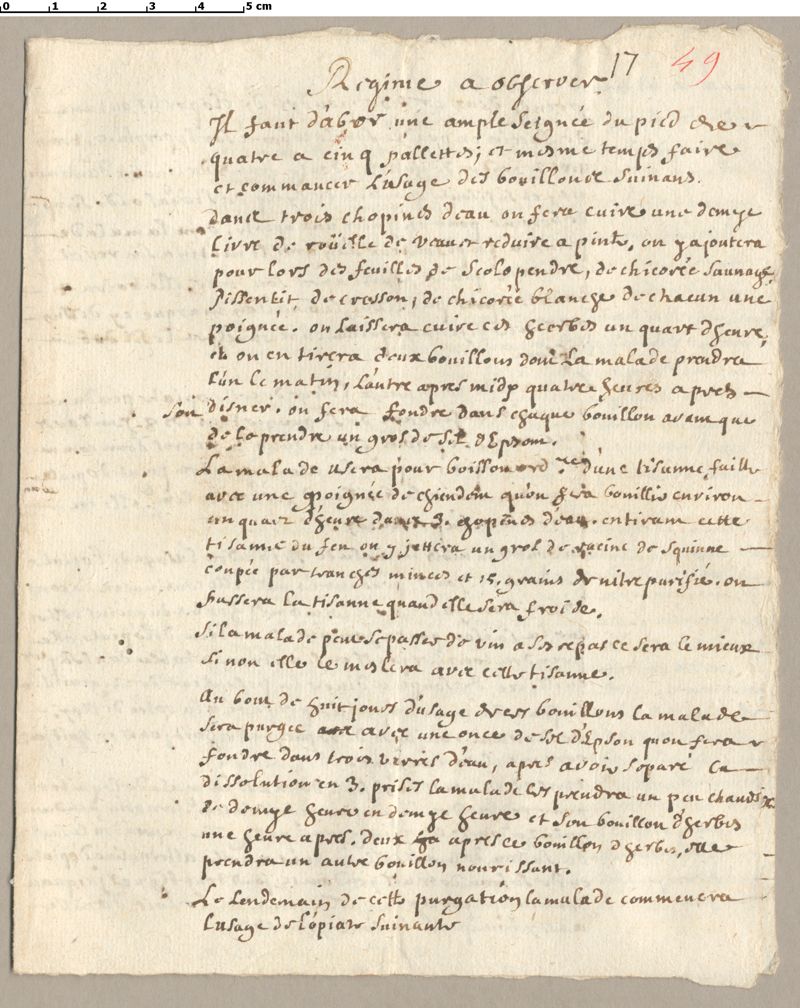 0 1 2 3 4 5 cm
17 49
Regime a observer
Il faut d'abor une ample seignée du pied de
quatre a cinq pallettes, et mesme temps faire
et commancer l'usage des bouillons suivans.
dans trois chopines d'eau on fera cuire une demye
livre de roüelle de veau et reduire a pinte, on y ajoutera
pour lors des feuilles de scolopendre, de chicorée sauvage,
pissenlit, de cresson, de chicorée blanche de chacun une
poignée. on laissera cuire ces herbes un quart d'heure,
et on en tirera deux bouillons dont La malade prendra
l'un le matin, l'autre apres midy quatre heures apres
son disner. on fera fondre dans chaque bouillon avant que
de le prendre un gros de sel d'Epsom.
La malade usera pour boisson ord.re d'une tisanne faitte
avec une poignée de chiendem qu'on fera bouillir environ
un quart d'heure dans 3. chopines d'eau. en tirant cette
tisanne du feu on y jettera un gros de racine de squinne
coupée par tranches minces et 15. grains de nitre purifié. on
passera la tisanne quand elle sera froide.
Si la malade peut se passer de vin a ses repas ce sera le mieux
si non elle le meslera avec cette tisanne.
Au bout de huit jours d'usage de ces bouillons la malade
sera purgée avec une once de sel d'Epson qu'on fera
fondre dans trois verres d'eau, apres avoir separé la
dissolution en 3. prises la malade les prendra un peu chaudes
de demye heure en demye heure et son bouillon d'herbes
une heure apres. deux ha apres ce bouillon d'herbes, elle
prendra un autre bouillon nourissant.
Le lendemain de cette purgation la malade commencera
l'usage de l'opiate suivante